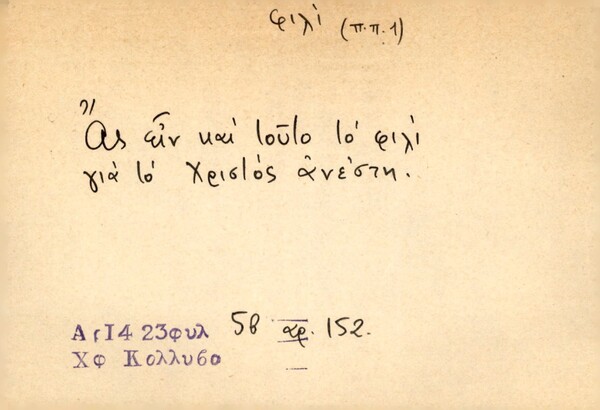 φιλὶ (π.π. 1)
Ἂς εἶν καὶ τοῦτο τὸ φιλὶ
γιὰ τὸ Χριστὸς ἀνέστη.
Αγ14 23φυλ 5β αρ. 152.
Χφ Κολλυβα